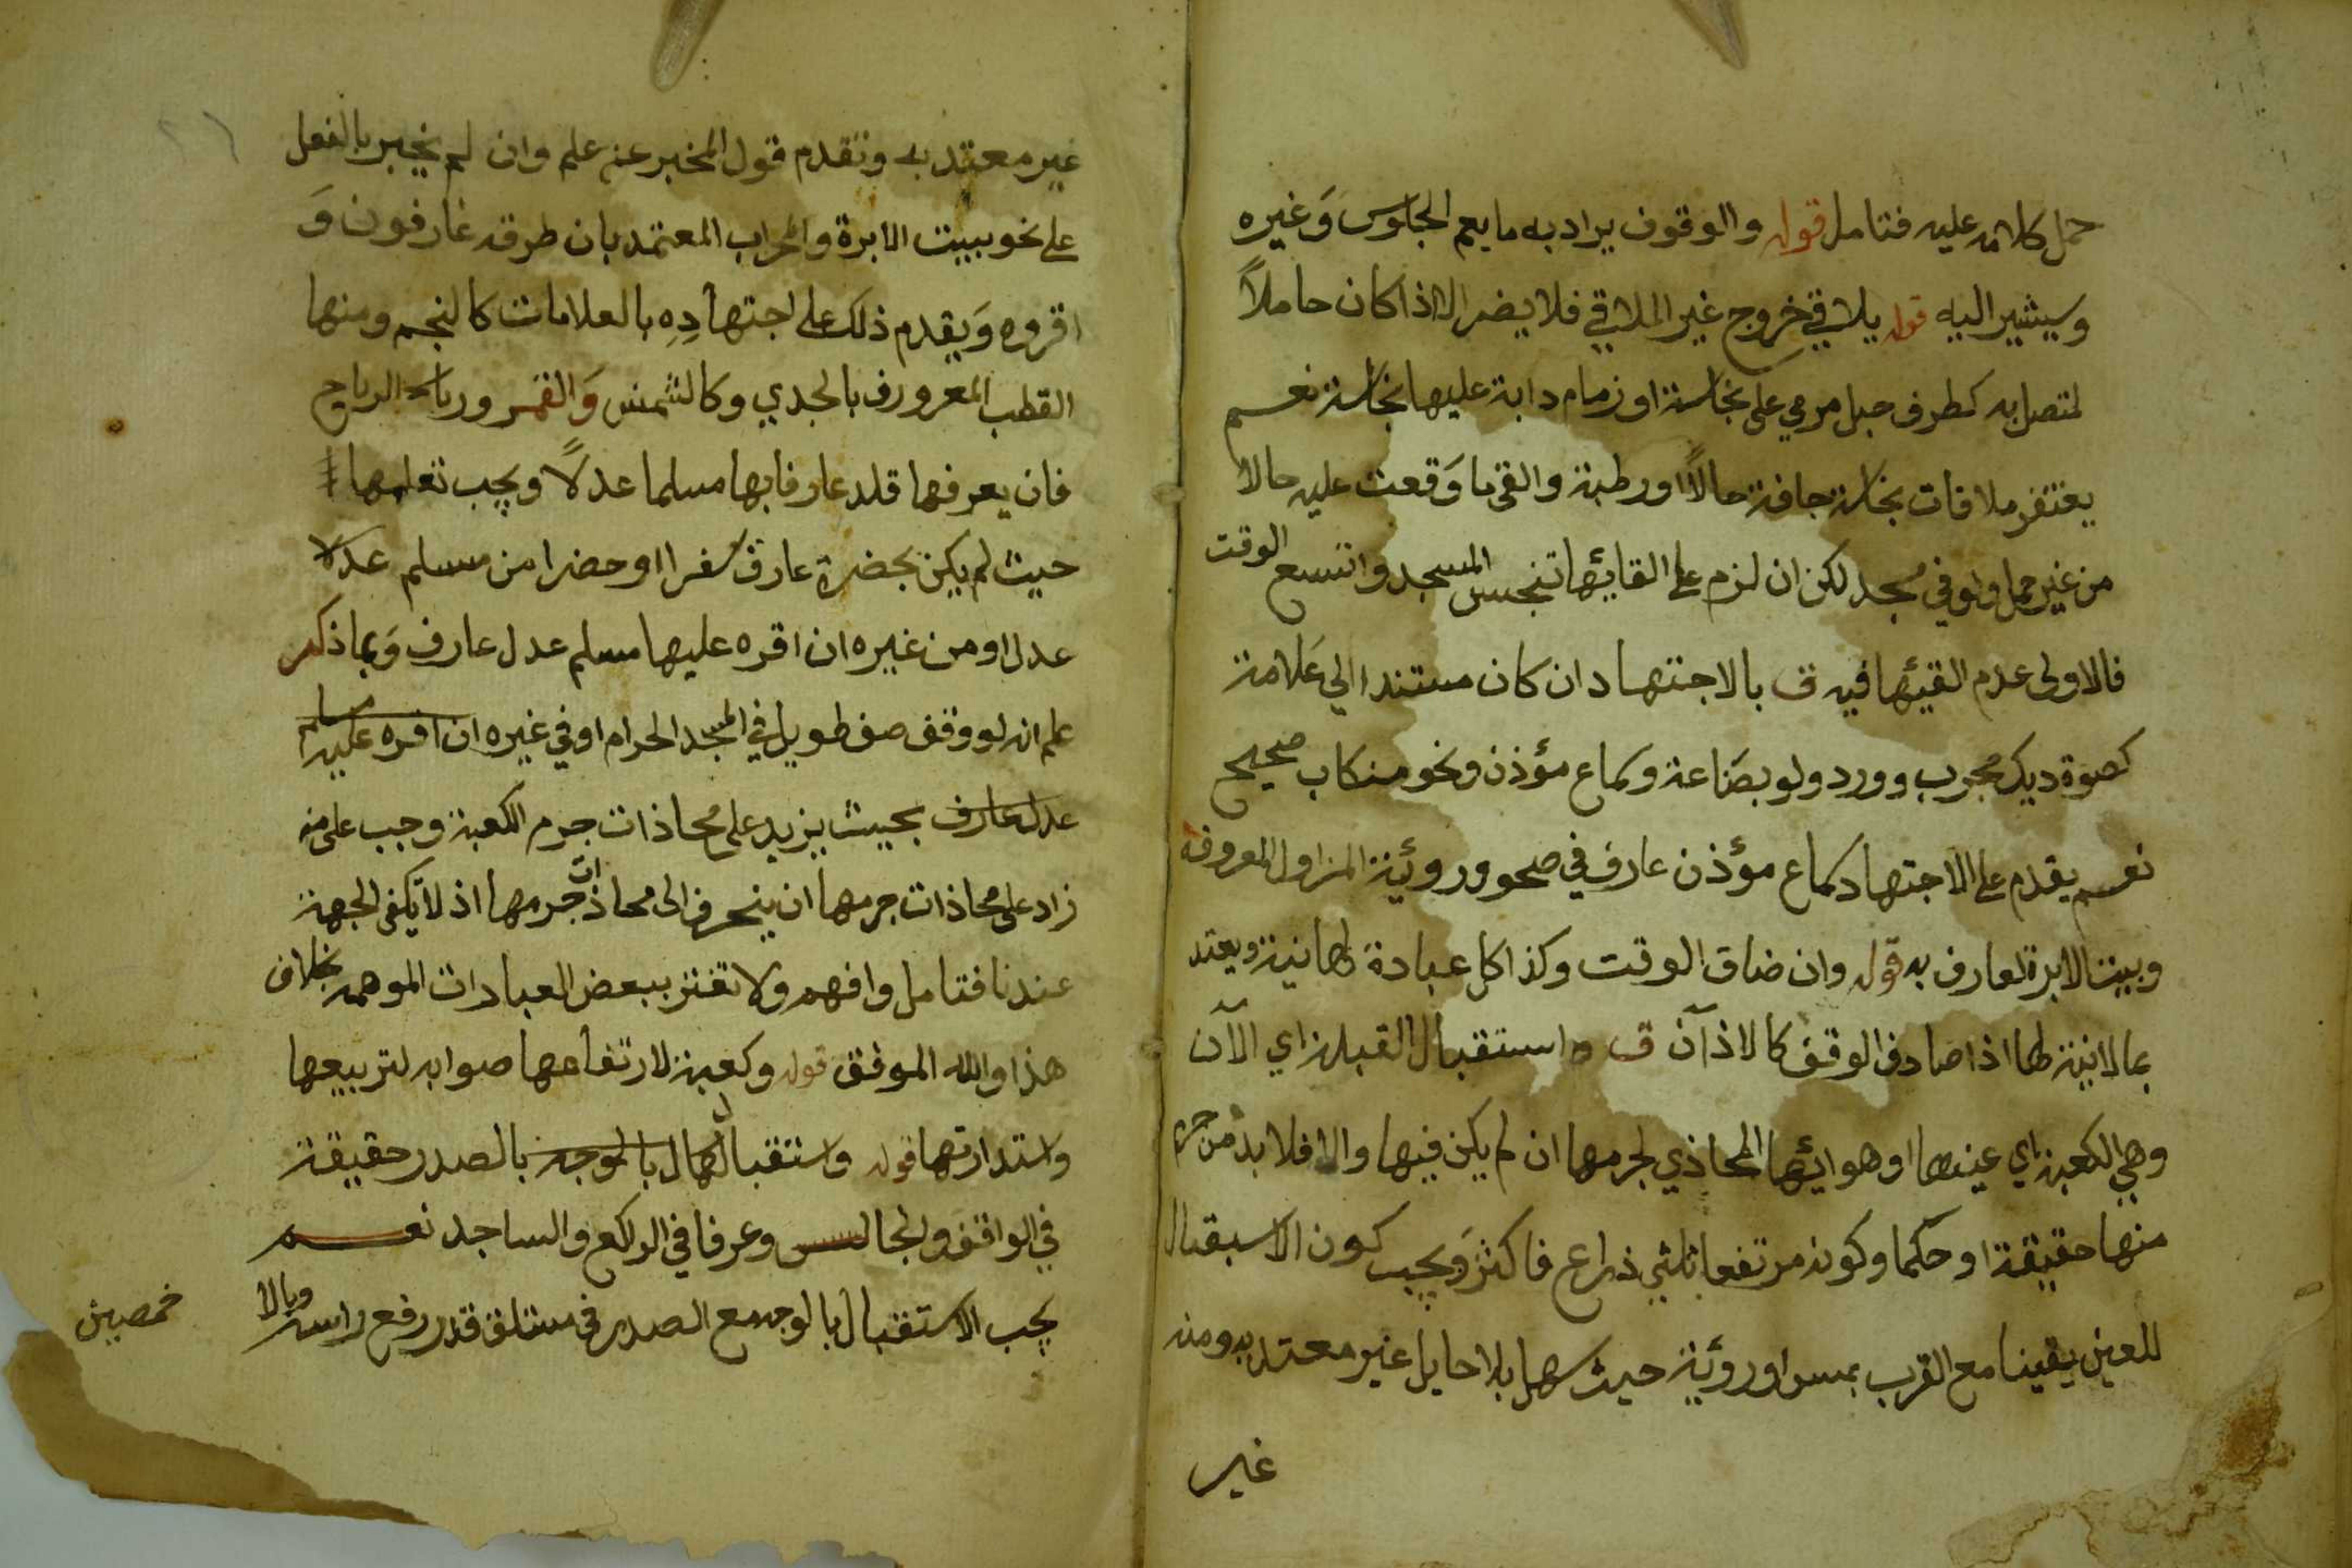 حمل كلامه عليه فتامل قوله والوقوف يراد به ما يعم الجلوس وَغيره
وسيشير اليه قوله يلاقي خروج غير الملاقي فلا يضر الا اذا كان حاملاً
لمتصل به كطرف حبل مرمي على نجاسة او زمام دابة عليها نجاسة نعم
يغتفر ملاقات نجاسة جافة حالاً او رطبة والقى ما وَقعت عليه حالا
من غير حمل ولو في مسجد لكن ان لزم على القائها تنجس المسجد واتسع الوقت
فالاولى عدم القيئها فيه ق بالاجتهاد ان كان مستندا الي عَلامة
كصوة ديك مجرب وورد ولو بصَناعة وكماع مؤذن ونحو منكاب صحيح
نعم يقدم على الاجتهاد كماع مؤذن عارف في صحو وروئية المزاول المعروفة
وبيت الابرة لعارف به قوله وان ضاق الوقت وكذا كل عبادة لها نية ويعتد
بما لا نية لها اذا صادف الوقف كالاذآن ق واستقبال القبلة اي الآن
وهي الكعبة اي عينها او هوائها المحاذي لجرمها ان لم يكن فيها والا فلا بد من جزء
منها حقيقة او حكما وكونه مرتفعا ثلثي ذراع فاكثر وَيجب كون الاسبقبال
للعين يقينا مع القرب بمس او روئية حيث سهل بلا حايل غير معتد به ومنه
غير
غير معتد به وتقدم قول المخبر عنه علم وان لم يخبر بالفعل
على نحو بييت الابرة والمحراب المعتمد بان طرقه عارفون وَ
اقروه وَيقدم ذلك على اجتهادِهِ بالعلامات كالنجم ومنها
القطب المعرورف بالجدي وكالشمس وَالقمر ورياسه الرياح
فان يعرفها قلد عارفا بها مسلما عدلاً ويجب تعلمها
حيث لم يكن بحضرة عارف سفرا او حضرا من مسلم عدلا
عدل او من غيره ان اقره عليها مسلم عدل عارف وَبما ذكر
علم انه لو وقف صف طويل في المسجد الحرام او في غيره ان اقره عليه مسلم
عدل عارف بحيث يزيد على محاذات جرم الكعبة وجب على من
زاد على محاذات جرمها ان ينحرف الى محاذات جرمها اذ لا يكفى الجهة
عندنا فتامل وافهم ولا تغتر ببعض العبادات الموهمه بخلاف
هذا والله الموفق قوله وكعبة لارتفاعها صوابه لتربيعها
واستدارتها قوله واستقبالها ل بالوجه بالصدر حقيقة
في الواقف والجالس وعرفا في الراكع والساجد نعم
يجب الاستقبال بالوجه مع الصدر في مستلق قدر رفع راسه وبالا
خمصين